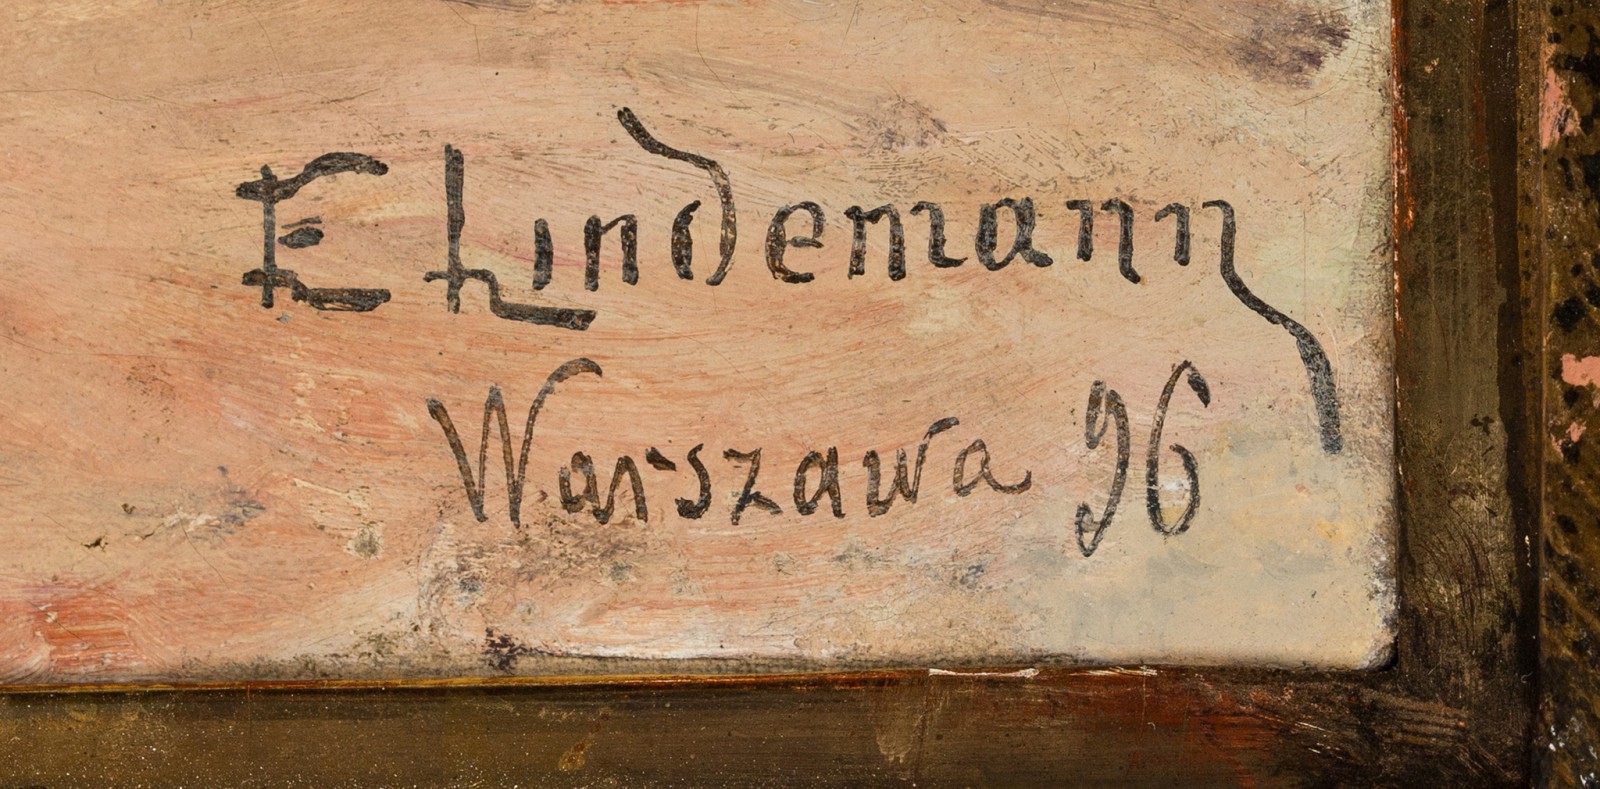 E Lindemann
Warszawa 96